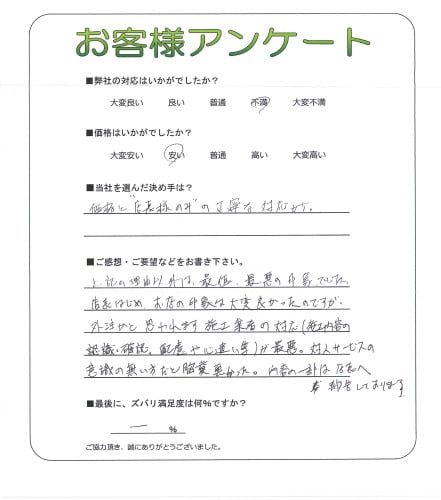 お客様アンケート
■弊社の対応はいかがでしたか?
大変良い 良い 普通 不満 大変不満
■価格はいかがでしたか?
大変安い 安い 普通 高い 大変高い
■当社を選んだ決め手は?
価格と"店長様のみ"の丁寧な対応から。
■ご感想・ご要望などをお書き下さい。
上記の理由以外は、最低、最悪の印象でした
店長はじめ お店の印象は大変良かったのですが、
外注かと思われます施工業者の対応(施工内容の
認識・確認、配慮や心遣い等)が最悪。対人サービスの
意識の無い方だと 悪かった。内容の一部は店長へ
報告しております
■最後に、ズバリ満足度は何%ですか?
― %
ご協力頂き、誠にありがとうございました。